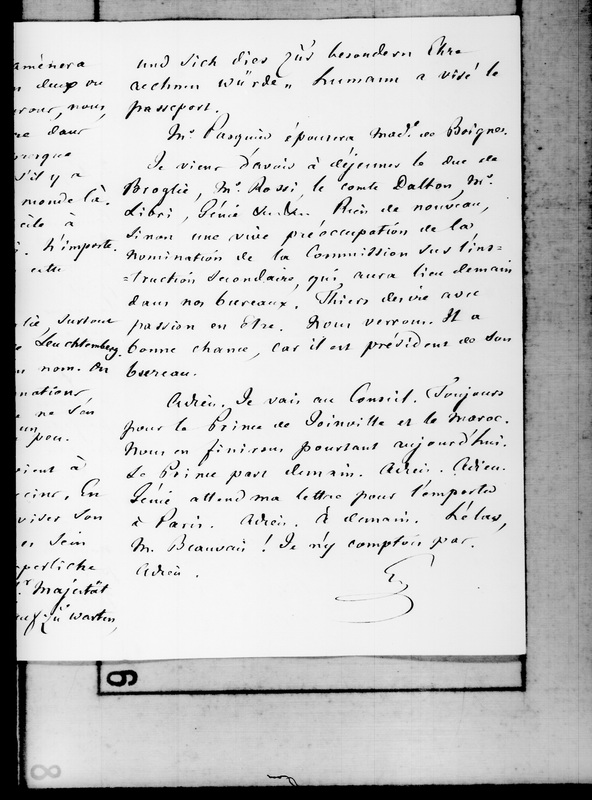 und sich dies zür besondern Ehre
rechnen würde " humann a visé le
passeport.
Mr Pasquier épousera Mad.e de Boigne.
Je viens d'avoir à déjeuner le duc de
Broglie, Mr. Rossi, le comte Dalton, Mr.
Libri, Génie &. Rien de nouveau,
sinon une vive préoccupation de la
nomination de la Commission sur l'ins=
=truction secondaire, qui aura lieu demain
dans nos bureaux. Thiers desire avec
passion en Etre. Nous verrons. Il a
bonne chance, car il est président de son
bureau.
Adieu. Je vais au Conseil. Toujours
pour le Prince de Joinville et le Maroc.
Nous en finirons pourtant aujourd'hui.
Le Prince part demain. Adieu. Adieu.
Génie attend ma lettre pour l'emporter
à Paris. Adieu. À demain. hélas,
M. Beauvais ! Je n'y comptois pas.
Adieu.
G
amènera
deux ou
nous,
dans
s'il y a
monde là.
à
n'importe.
elle
surtout
Leuchtemberg.
nom. On
ne s'en
peu.
vient à
En
viser son
sein
Majestät
zü warten,
6
8